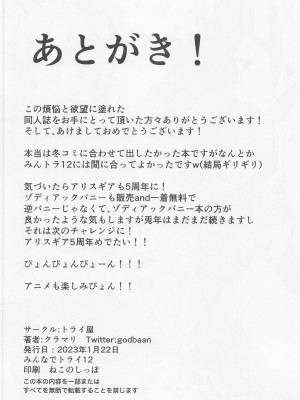 あとがき！
この煩悩と欲望に塗れた
同人誌をお手にとって頂いた方々ありがとうございます！
そして、あけましておめでとうございます！
本当は冬コミに合わせて出したかった本ですがなんとか
みんトラ12には間に合ってよかったですw(結局ギリギリ)
気づいたらアリスギアも5周年に！
ゾディアックバニーも販売and一着無料で
逆バニーじゃなくて、ゾディアックバニー本の方が
良かったような気もしますが兎年はまだまだ続きますし
それは次のチャレンジに！
アリスギア5周年めでたい！！
ぴょんぴょんぴょーん！！！
アニメも楽しみぴょん！
サークル:トライ屋
著者:クラマリ　Twitter:godbaan
発行日：2023年1月22日
みんなでトライ12
印刷　ねこのしっぽ
この本の内容を一部または
すべてを無断で転載することを禁じます